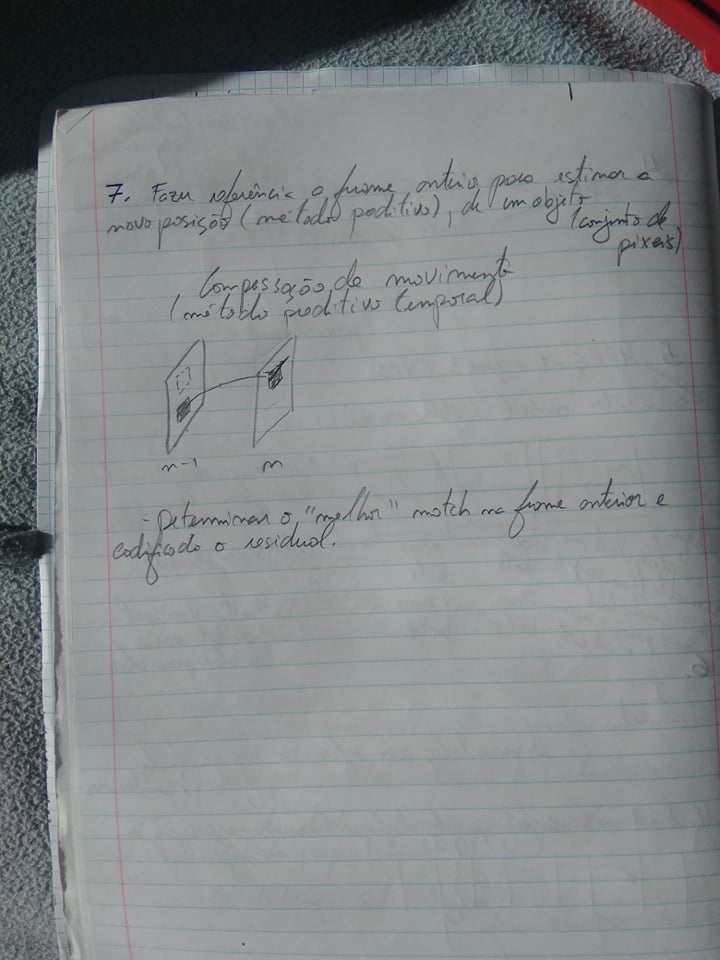 7. Fazer referência a frame anterior para estimar a
nova posição (método preditivo), de um objeto
(conjunto de
pixeis)
Compessação de movimento
(método preditivo temporal)
n-1 n
- Determinar o "melhor" match na frame anterior e
codificado o residual.